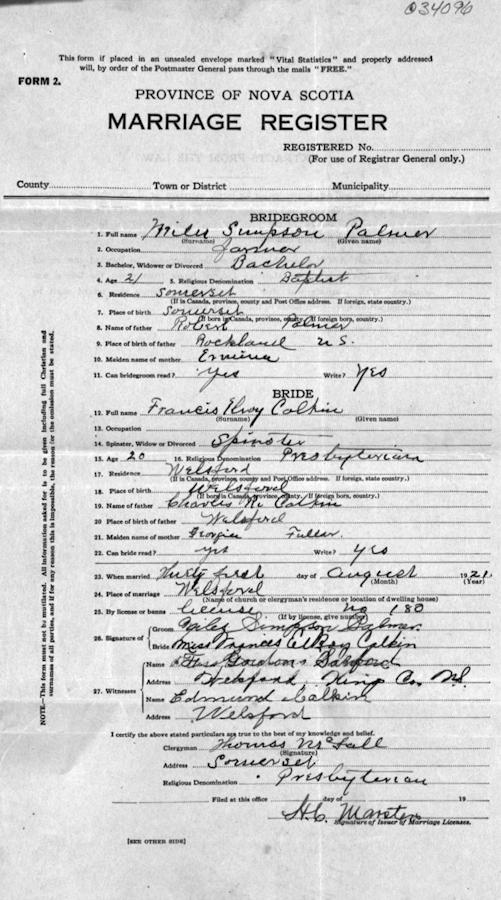 034096
This form if placed in an unsealed envelope marked "Vital Statistics" and properly addressed
will, by order of the Postmaster General pass through the mails "FREE."
FORM 2.
PROVINCE OF NOVA SCOTIA
MARRIAGE REGISTER
REGISTERED No.
(For use of Registrar General only.)
County Town or District Municipality
BRIDEGROOM
1. Full name Miles Simpson Palmer
(Surname) (Given name)
2. Occupation Farmer
3. Bachelor, Widower or Divorced Bachelor
4. Age 21 5. Religious Denomination Baptist
6. Residence Somerset
(If in Canada, province, county and Post Office address. If foreign, state country.)
7. Place of birth Somerset
(If born in Canada, province, county. If foreign born, state country.)
8. Name of father Robert Palmer
9. Place of birth of father Rockland U S.
10. Maiden name of mother
11. Can bridegroom read? Yes Write? Yes
BRIDE
12. Full name Francis Elroy Calkin
(Surname) (Given name)
13. Occupation
14. Spinster, Widow or Divorced Spinster
15. Age 20 16. Religious Denomination Presbyterian
17. Residence Welsford
(If in Canada, province, county and Post Office address. If foreign, state country.)
18. Place of birth Welsford
(If born in Canada, province, county. If foreign born, state country.)
19. Name of father Charles Calkin
20. Place of birth of father Welsford
21. Maiden name of mother Georgia Fuller.
22. Can bride read? yes Write? Yes
23. When married Thirty first day of August 1921.
(Month) (Year)
24. Place of marriage Welsford
(Name of church or clergyman's residence or location of dwelling house)
25. By license or banns license no 180
(If by license, give number)
26. Signature of Groom Miles Simpson Palmer
Bride Miss Frances ElRoy Calkin
27. Witnesses
Name
Address Welsford Kings Co. N.S.
Name Edmund Calkin
Address Welsford
I certify the above stated particulars are true to the best of my knowledge and belief.
Clergyman Thomas McFall
(Signature)
Address Somerset
Religious Denomination Presbyterian
Filed at this office day of 19
H.C. Marsten
Signature of Issuer of Marriage Licenses.
[SEE OTHER SIDE]
NOTE.—This form must not be mutilated. All information asked for is to be given including full Christian and
surnames of all parties, and if for any reason this is impossible, the reason for the omission must be stated.